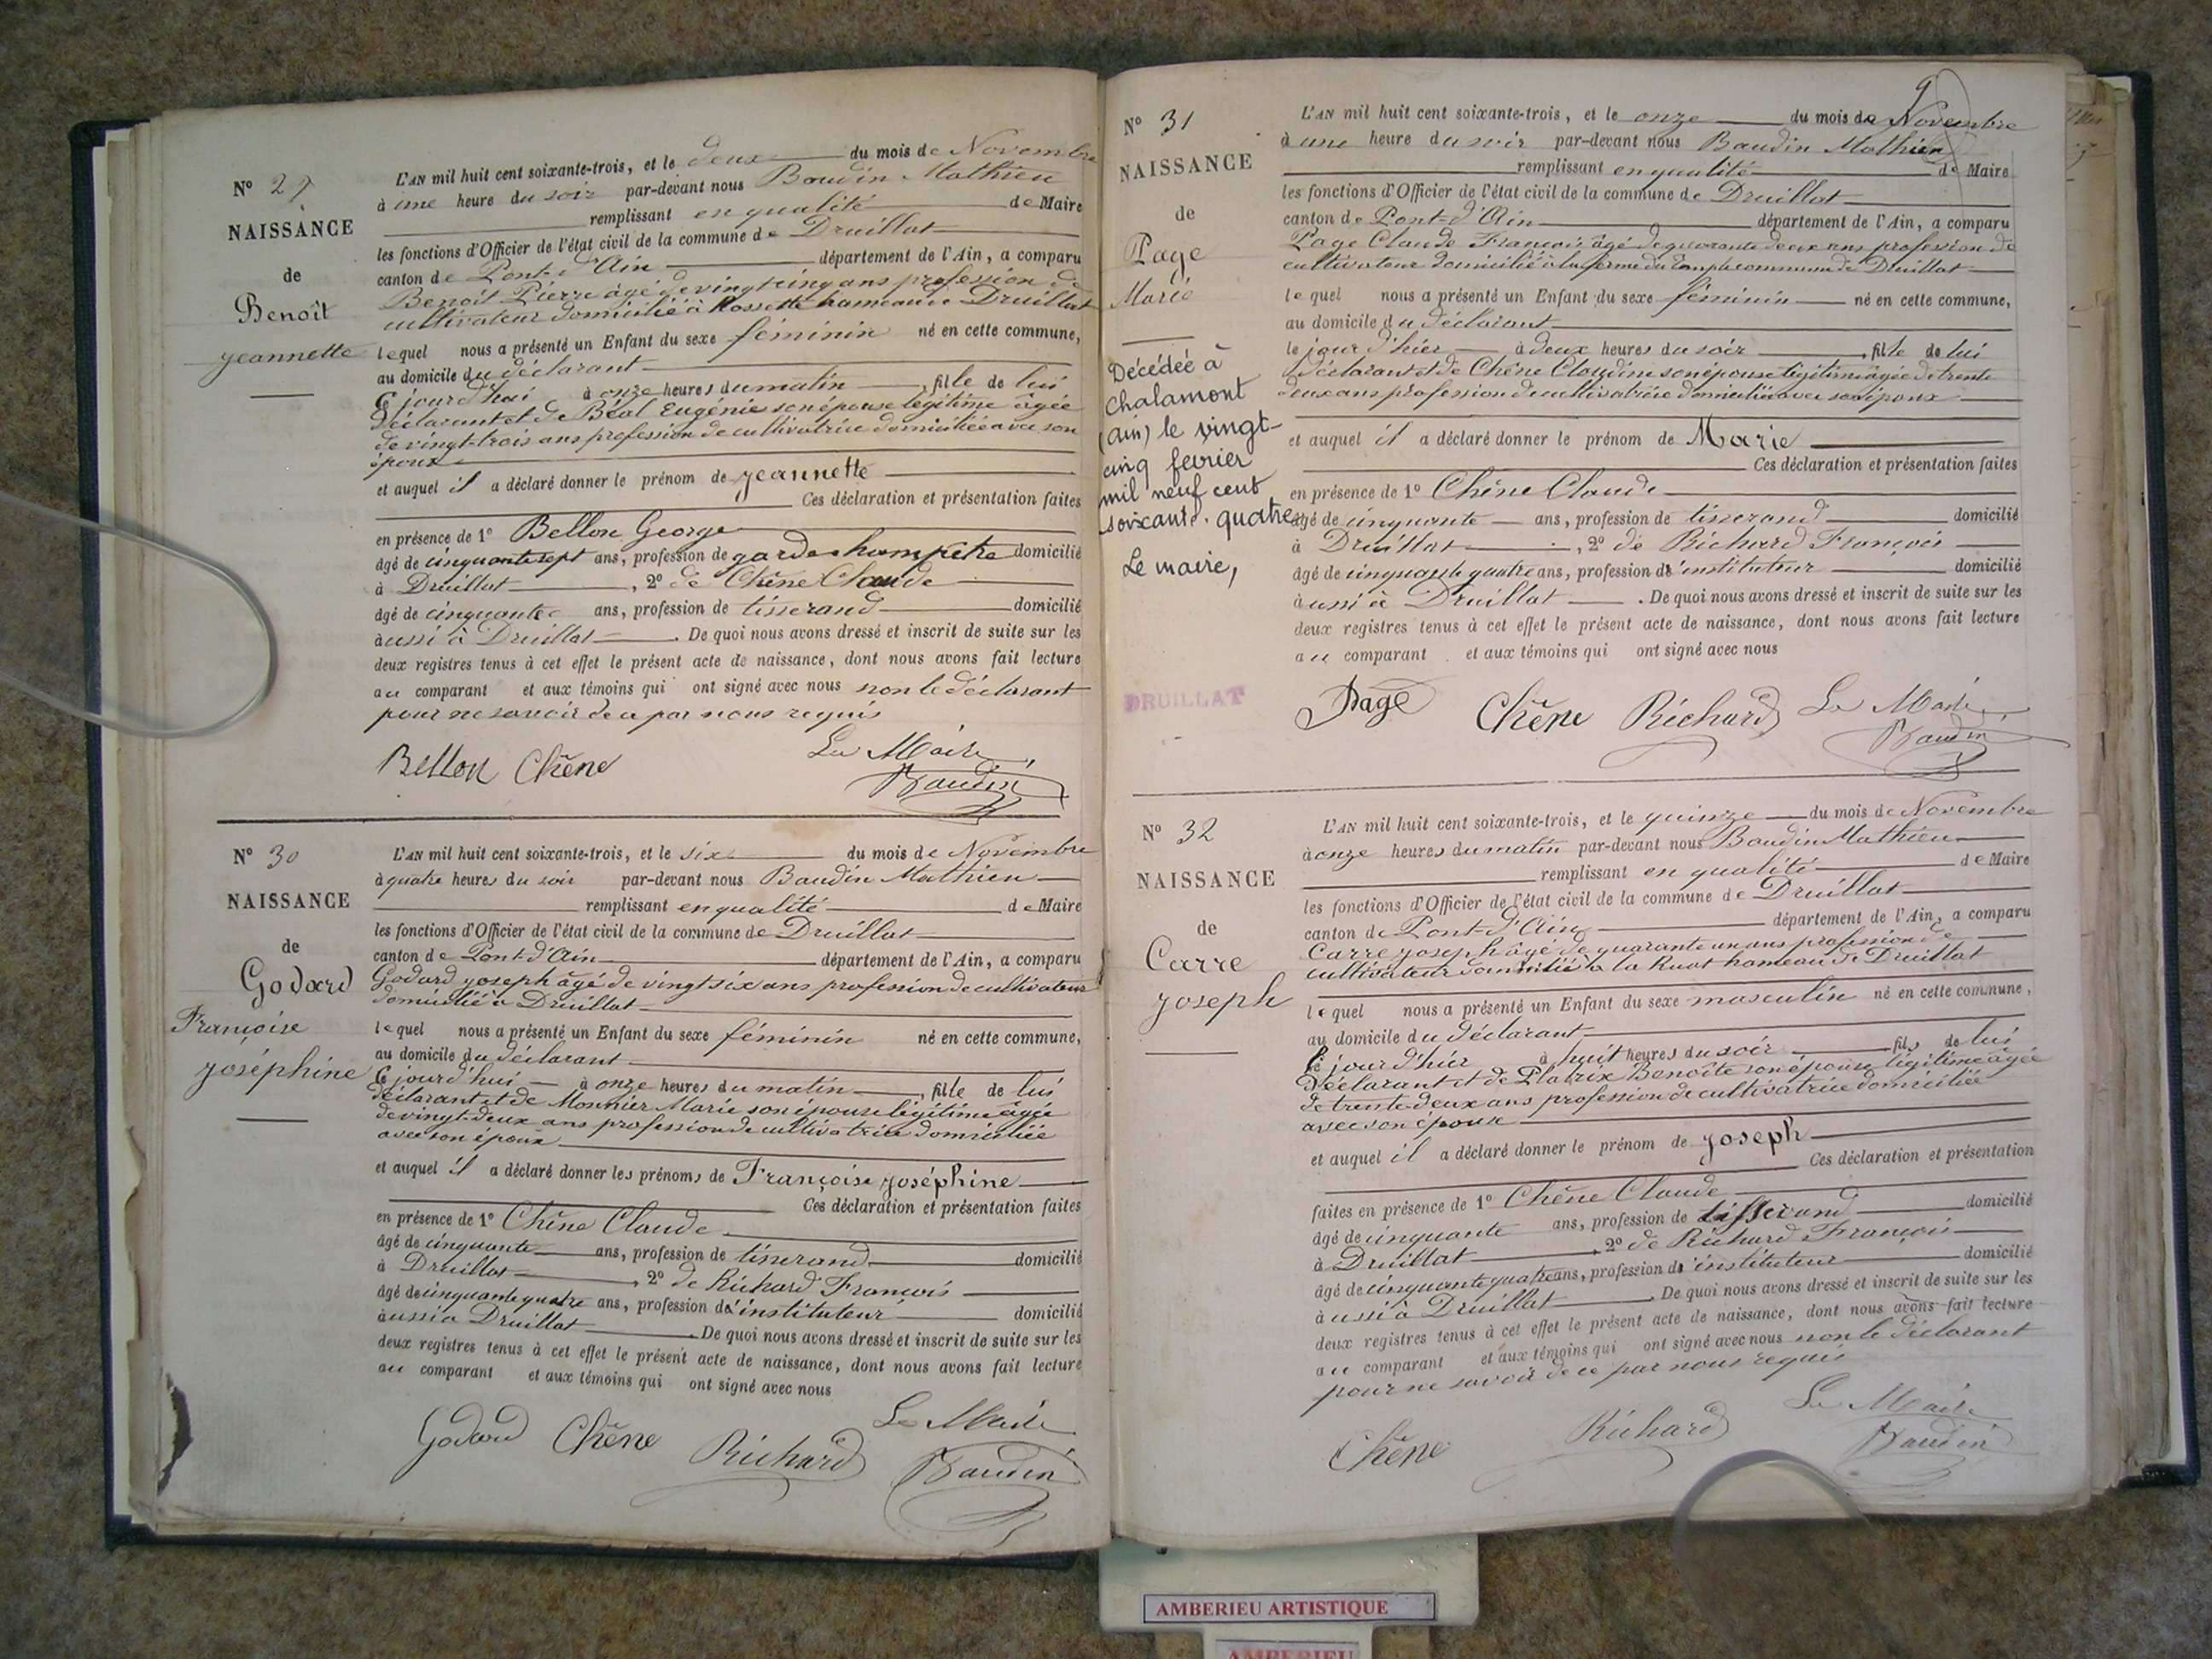 N° 29
NAISSANCE
de
Benoît
Jeannette
L'AN mil huit cent soixante-trois, et le deux du mois de Novembre
à une heure du soir par-devant nous Baudin Mathieu
remplissant en qualité de Maire
les fonctions d'Officier de l'état civil de la commune de Druillat
canton de Pont-d'Ain département de l'Ain, a comparu
Benoît Pierre âgé de vingt cinq ans profession de
cultivateur domicilié à Rossette hameau de Druillat
lequel nous a présenté un Enfant du sexe féminin né en cette commune,
au domicile du déclarant
Ce jourd'hui à onze heures du matin, fille de lui
déclarant et de Béal Eugénie son épouse légitime âgée
de vingt-trois ans profession de cultivatrice domiciliée avec son
époux
et auquel il a déclaré donner le prénom de Jeannette
Ces déclaration et présentation faites
en présence de 1° Bellon George
âgé de cinquante sept ans, profession de garde champêtre domicilié
à Druillat, 2° de Chêne Claude
âgé de cinquante ans, profession de tisserand domicilié
aussi à Druillat. De quoi nous avons dressé et inscrit de suite sur les
deux registres tenus à cet effet le présent acte de naissance, dont nous avons fait lecture
au comparant et aux témoins qui ont signé avec nous non le déclarant
pour ne savoir de ce par nous requis
Bellon Chêne Le Maire
Baudin
N° 30
NAISSANCE
de
Godard
Françoise
Joséphine
L'AN mil huit cent soixante-trois, et le six du mois de Novembre
à quatre heures du soir par-devant nous Baudin Mathieu
remplissant en qualité de Maire
les fonctions d'Officier de l'état civil de la commune de Druillat
canton de Pont-d'Ain département de l'Ain, a comparu
Godard Joseph âgé de vingt six ans profession de cultivateur
domicilié à Druillat
lequel nous a présenté un Enfant du sexe féminin né en cette commune,
au domicile du déclarant
Ce jourd'hui à onze heures du matin, fille de lui
déclarant et de Monnier Marie son épouse légitime âgée
de vingt-deux ans profession de cultivatrice domiciliée
avec son époux
et auquel il a déclaré donner les prénoms de Françoise Joséphine
Ces déclaration et présentation faites
en présence de 1° Chêne Claude
âgé de cinquante ans, profession de tisserand domicilié
à Druillat, 2° de Richard François
âgé de cinquante quatre ans, profession d'instituteur domicilié
aussi à Druillat. De quoi nous avons dressé et inscrit de suite sur les
deux registres tenus à cet effet le présent acte de naissance, dont nous avons fait lecture
au comparant et aux témoins qui ont signé avec nous
Godard Chêne Richard Le Maire
Baudin
9
N° 31
NAISSANCE
de
Page
Marie
Décédée à
Chalamont
(Ain) le vingt-
cinq fevrier
mil neuf cent
soixante. quatre
Le maire,
DRUILLAT
L'AN mil huit cent soixante-trois, et le onze du mois de Novembre
à une heure du soir par-devant nous Baudin Mathieu
remplissant en qualité de Maire
les fonctions d'Officier de l'état civil de la commune de Druillat
canton de Pont-d'Ain département de l'Ain, a comparu
Page Claude François âgé de quarante deux ans profession de
cultivateur domicilié à la ferme du Temple commune de Druillat
lequel nous a présenté un Enfant du sexe féminin né en cette commune,
au domicile du déclarant
le jour d'hier à deux heures du soir, fille de lui
déclarant et de Chêne Claudine son épouse légitime âgée de trente
deux ans profession de cultivatrice domiciliée avec son époux
et auquel il a déclaré donner le prénom de Marie
Ces déclaration et présentation faites
en présence de 1° Chêne Claude
âgé de cinquante ans, profession de tisserand domicilié
à Druillat, 2° de Richard François
âgé de cinquante quatre ans, profession d'instituteur domicilié
aussi à Druillat. De quoi nous avons dressé et inscrit de suite sur les
deux registres tenus à cet effet le présent acte de naissance, dont nous avons fait lecture
au comparant et aux témoins qui ont signé avec nous
Page Chêne Richard Le Maire
Baudin
N° 32
NAISSANCE
de
Carre
Joseph
L'AN mil huit cent soixante-trois, et le quinze du mois de Novembre
à onze heures du matin par-devant nous Baudin Mathieu
remplissant en qualité de Maire
les fonctions d'Officier de l'état civil de la commune de Druillat
canton de Pont-d'Ain département de l'Ain, a comparu
Carre Joseph âgé de quarante un ans profession de
cultivateur domicilié à la Ruat hameau de Druillat
lequel nous a présenté un Enfant du sexe masculin né en cette commune,
au domicile du déclarant
Le jour d'hier à huit heures du soir fils de lui
déclarant et de Platrix Benoîte son épouse légitime âgée
de trente-deux ans profession de cultivatrice domiciliée
avec son époux
et auquel il a déclaré donner le prénom de Joseph
Ces déclaration et présentation
faites en présence de 1° Chêne Claude
âgé de cinquante ans, profession de tisserand domicilié
à Druillat, 2° de Richard François
âgé de cinquante quatre ans, profession d'instituteur domicilié
aussi à Druillat. De quoi nous avons dressé et inscrit de suite sur les
deux registres tenus à cet effet le présent acte de naissance, dont nous avons fait lecture
au comparant et aux témoins qui ont signé avec nous non le déclarant
pour ne savoir de ce par nous requis
Chêne Richard Le Maire
Baudin
AMBERIEU ARTISTIQUE
AMBERIEU